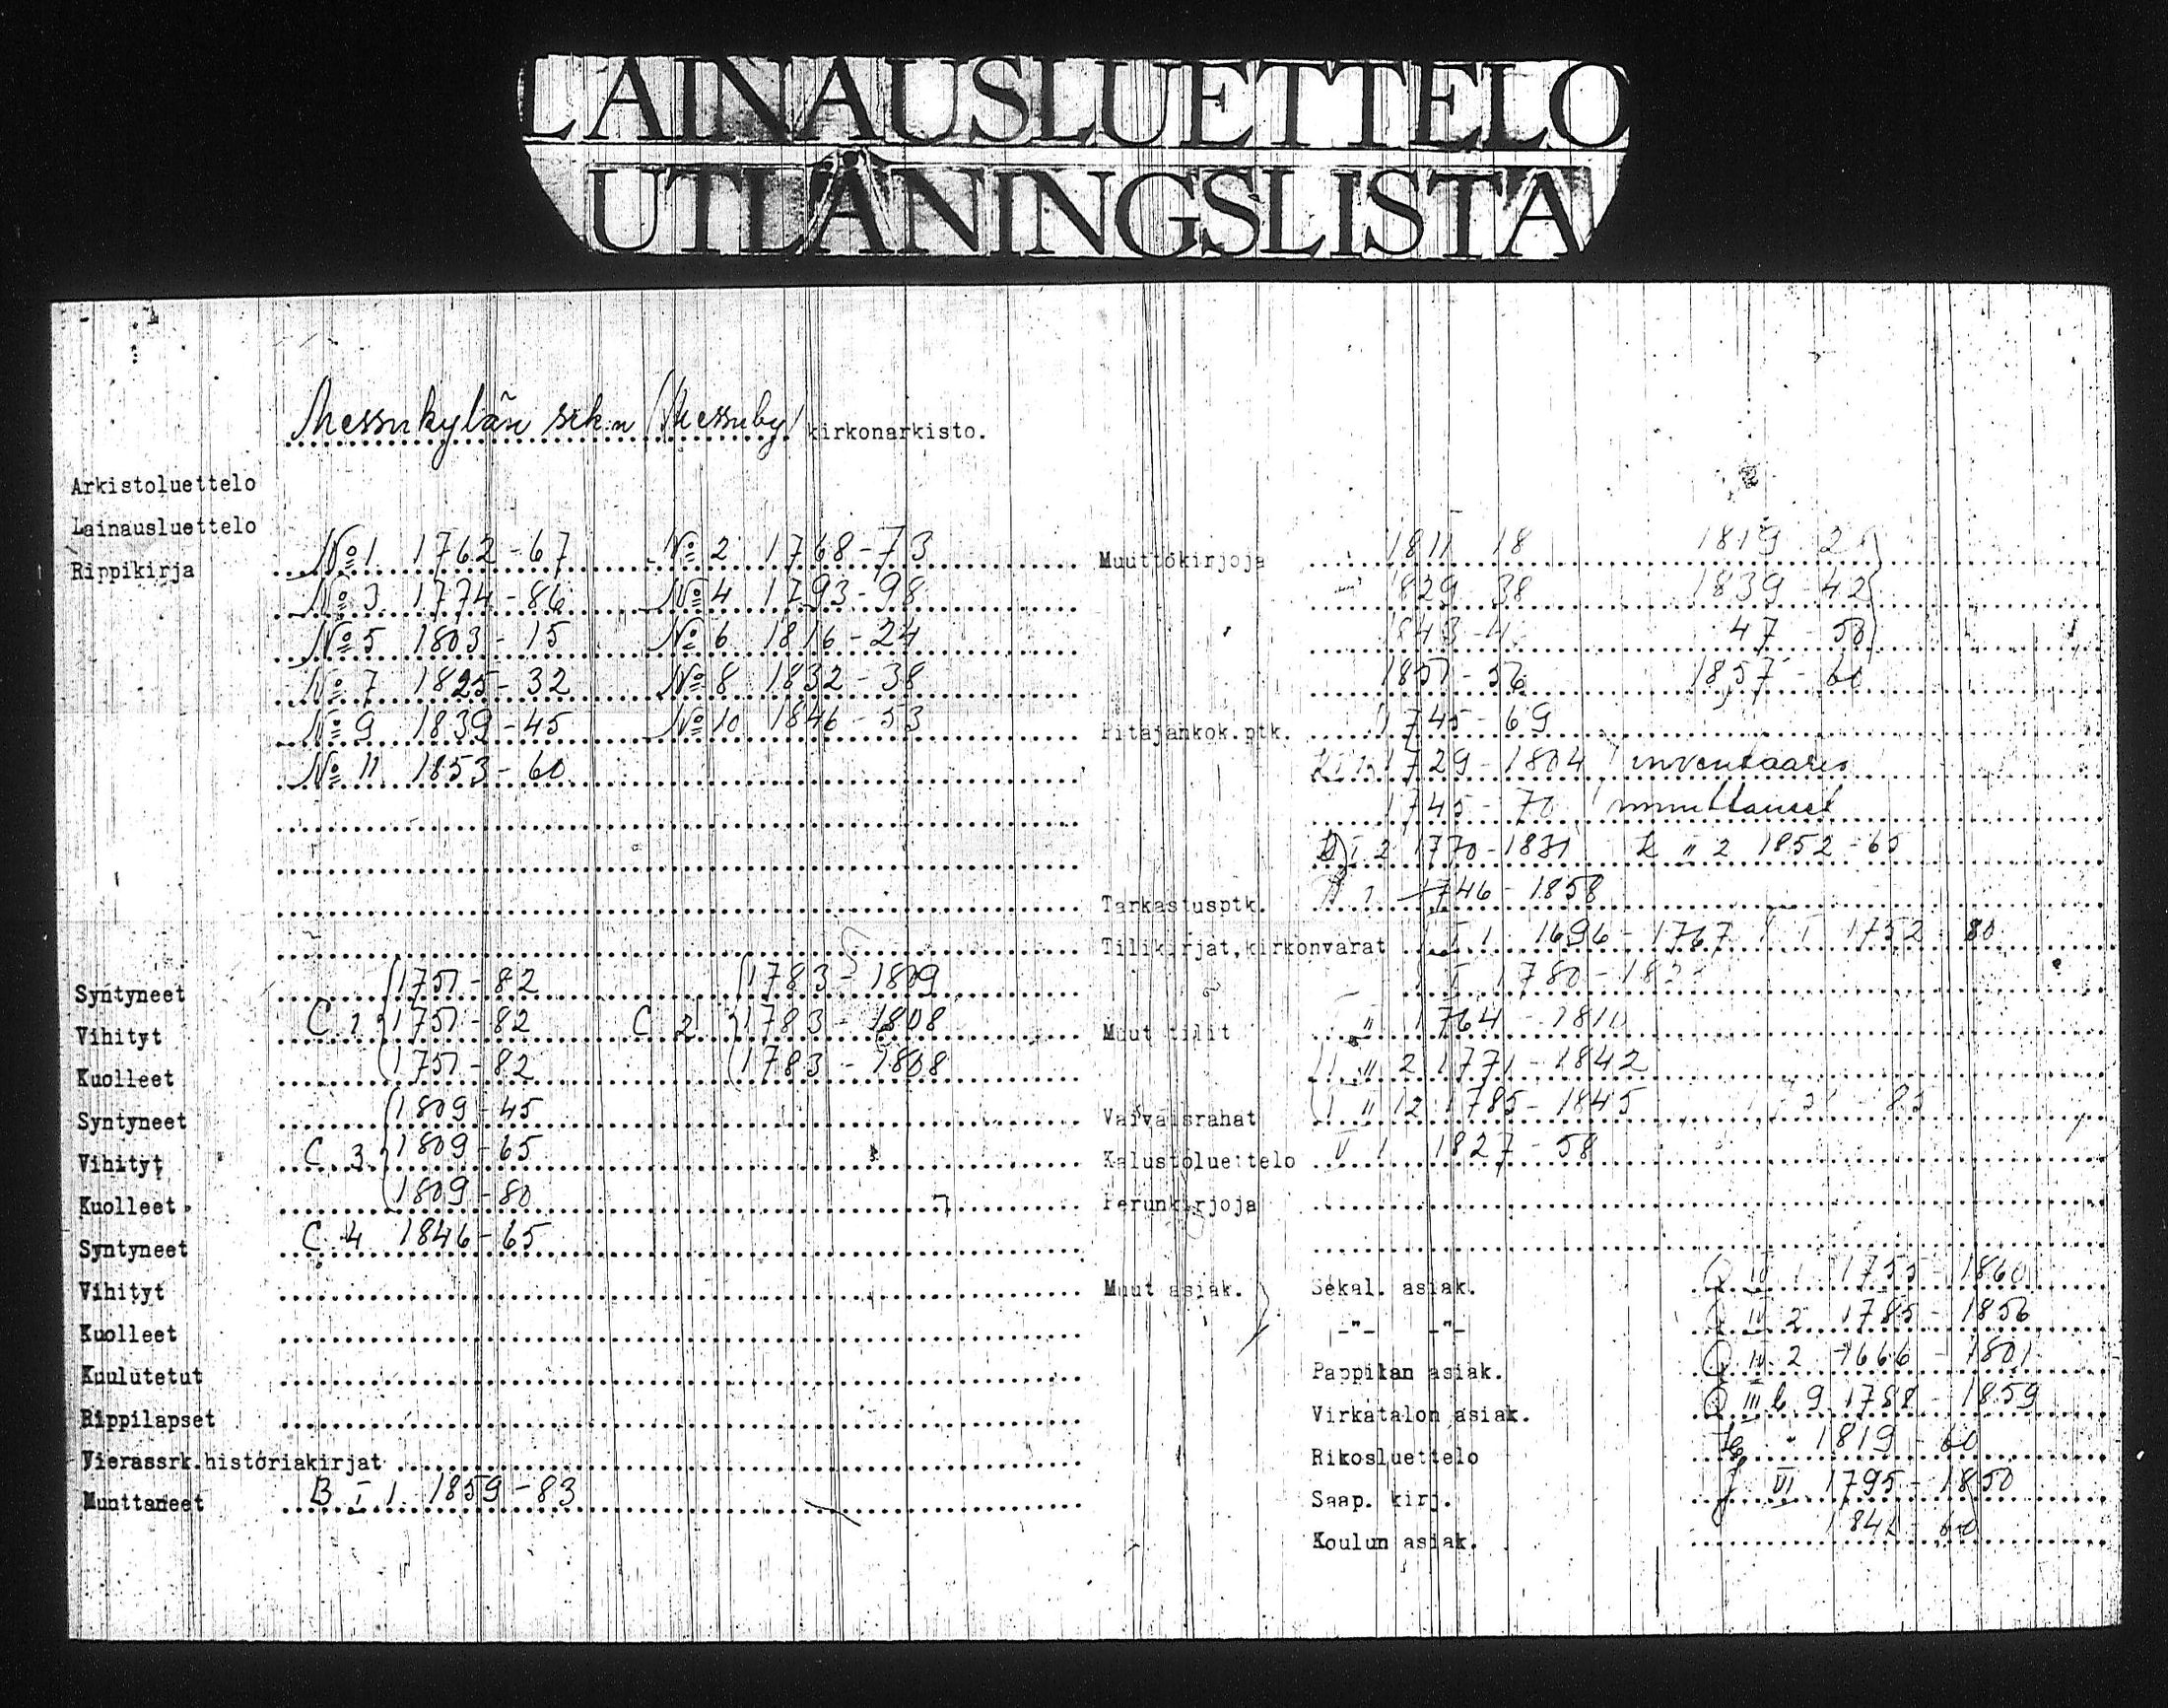 LAINAUSLUETTELO
UTLÅNINGSLISTA
Messukylän srk:n (Messuby) kirkonarkisto.
Arkistoluettelo
Lainausluettelo
Rippikirja No 1 1762-67 No 2 1768-73
No 3 1774-86 No 4 1793-98
No 5 1803-15 No 6 1816-24
No 7 1825-32 No 8 1832-38
No 9 1839-45 No 10 1846-53
No 11 1853-60
Syntyneet 1751-82 1783-1809
Vihityt C 1 1751-82 C 2 1783-1808
Kuolleet 1751-82 1783-1808
Syntyneet 1809-45
Vihityt C 3 1809-65
Kuolleet 1809-80
Syntyneet C 4 1846-65
Vihityt
Kuolleet
Kuulutetut
Rippilapset
Vierassrk.historiakirjat
Muuttaneet B I 1 1859-83
Muuttokirjoja 1811 18 1819
1829 38 1839-42
47-50
1851-56 1857-60
Pitäjänkok.ptk. 1745-69
1729-1804 inventaario
1745-70 muuttaneet
I 2 1770-1831 II 2 1852-65
Tarkastusptk. 1746-1858
Tilikirjat,kirkonvarat I 1 1696-1767 I 1752 80
I 1780
Muut tilit II 1764-1810
II 2 1771-1842
Vaivaisrahat II 12 1785-1845
Kalustoluettelo 1 1827-58
Perunkirjoja
Muut asiak. Sekal. asiak. 1 1755-1860
-"- -"- 2 1785-1856
Pappilan asiak. 2 1666-1801
Virkatalon asiak. III b 9 1788-1859
Rikosluettelo 1819-60
Saap. kirj. VI 1795-1850
Koulun asiak. 60